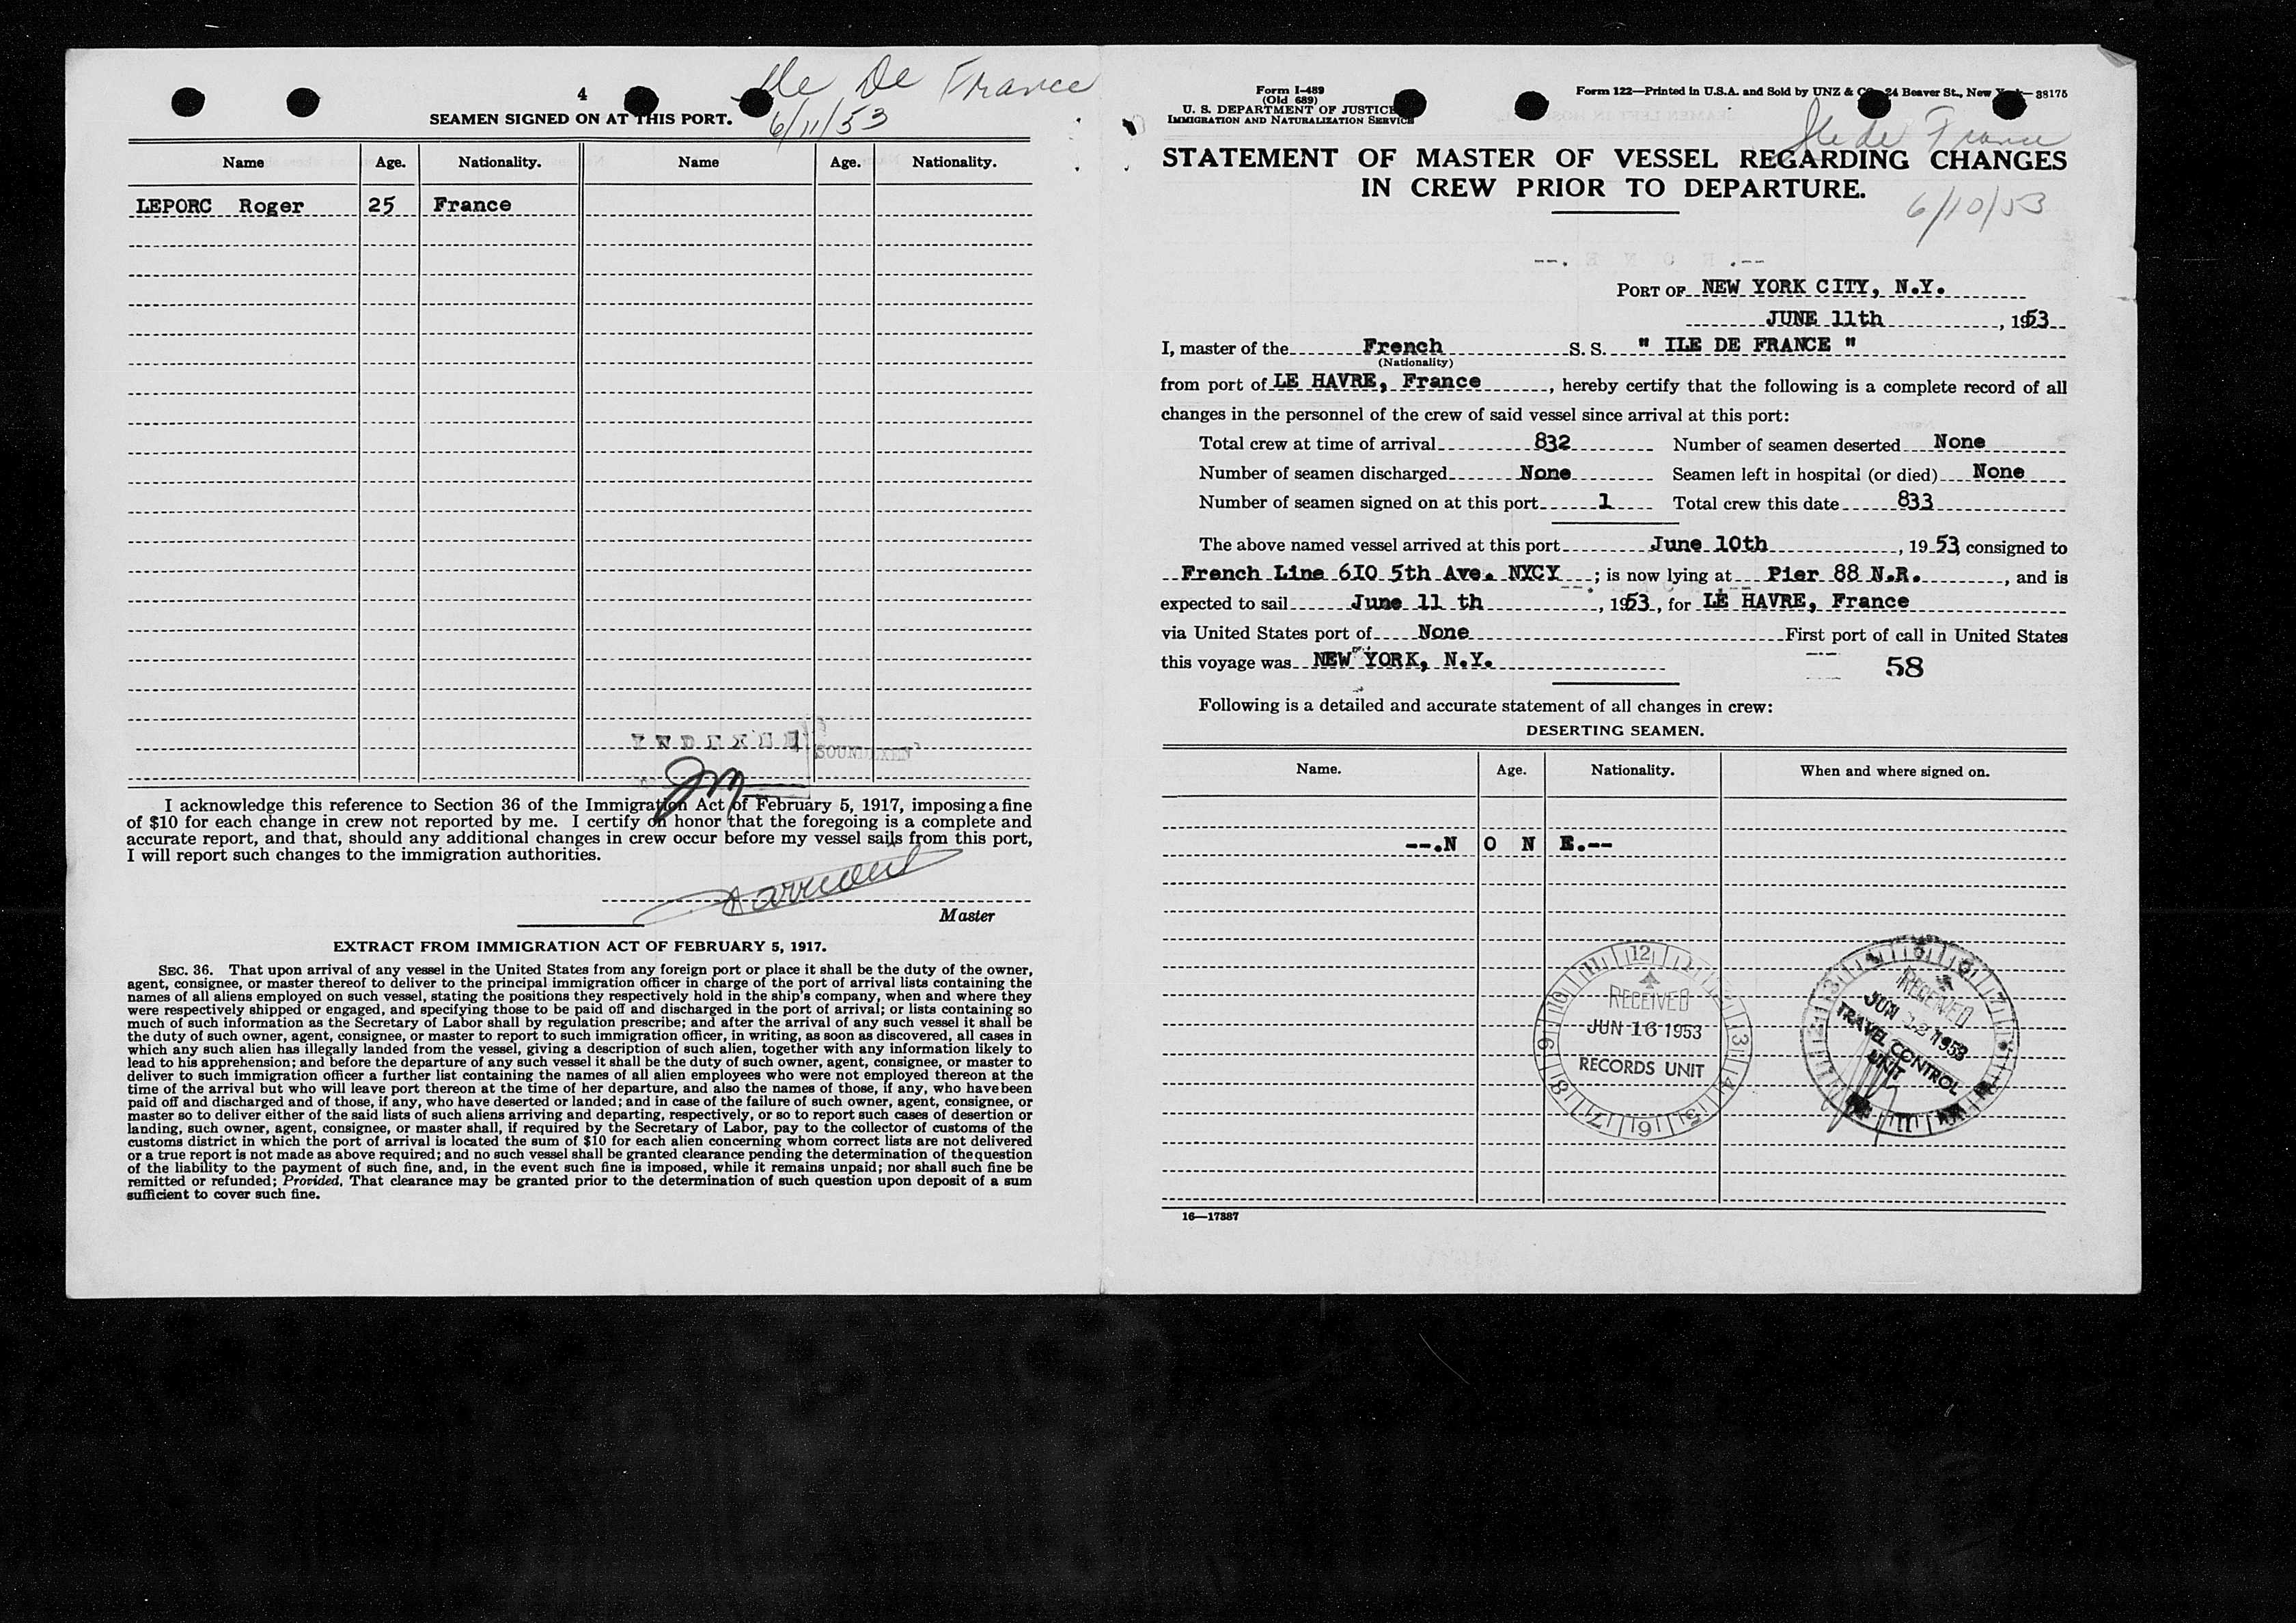 4
Ile De France
6/11/53
SEAMEN SIGNED ON AT THIS PORT.
Name Age. Nationality. Name Age. Nationality.
LEPORC Roger 25 France
INDEXED
I acknowledge this reference to Section 36 of the Immigration Act of February 5, 1917, imposing a fine
of $10 for each change in crew not reported by me. I certify on honor that the foregoing is a complete and
accurate report, and that, should any additional changes in crew occur before my vessel sails from this port,
I will report such changes to the immigration authorities.
Master
EXTRACT FROM IMMIGRATION ACT OF FEBRUARY 5, 1917.
SEC. 36. That upon arrival of any vessel in the United States from any foreign port or place it shall be the duty of the owner,
agent, consignee, or master thereof to deliver to the principal immigration officer in charge of the port of arrival lists containing the
names of all aliens employed on such vessel, stating the positions they respectively hold in the ship's company, when and where they
were respectively shipped or engaged, and specifying those to be paid off and discharged in the port of arrival; or lists containing so
much of such information as the Secretary of Labor shall by regulation prescribe; and after the arrival of any such vessel it shall be
the duty of such owner, agent, consignee, or master to report to such immigration officer, in writing, as soon as discovered, all cases in
which any such alien has illegally landed from the vessel, giving a description of such alien, together with any information likely to
lead to his apprehension; and before the departure of any such vessel it shall be the duty of such owner, agent, consignee, or master to
deliver to such immigration officer a further list containing the names of all alien employees who were not employed thereon at the
time of the arrival but who will leave port thereon at the time of her departure, and also the names of those, if any, who have been
paid off and discharged and of those, if any, who have deserted or landed; and in case of the failure of such owner, agent, consignee, or
master so to deliver either of the said lists of such aliens arriving and departing, respectively, or so to report such cases of desertion or
landing, such owner, agent, consignee, or master shall, if required by the Secretary of Labor, pay to the collector of customs of the
customs district in which the port of arrival is located the sum of $10 for each alien concerning whom correct lists are not delivered
or a true report is not made as above required; and no such vessel shall be granted clearance pending the determination of the question
of the liability to the payment of such fine, and, in the event such fine is imposed, while it remains unpaid; nor shall such fine be
remitted or refunded; Provided, That clearance may be granted prior to the determination of such question upon deposit of a sum
sufficient to cover such fine.
Form I-489
(Old 689)
U. S. DEPARTMENT OF JUSTICE
IMMIGRATION AND NATURALIZATION SERVICE
Form 122—Printed in U.S.A. and Sold by UNZ & CO., 24 Beaver St., New York—38175
Ile de France
STATEMENT OF MASTER OF VESSEL REGARDING CHANGES
IN CREW PRIOR TO DEPARTURE.
6/10/53
PORT OF NEW YORK CITY, N.Y.
JUNE 11th, 1953
I, master of the French S. S. " ILE DE FRANCE "
(Nationality)
from port of LE HAVRE, France, hereby certify that the following is a complete record of all
changes in the personnel of the crew of said vessel since arrival at this port:
Total crew at time of arrival 832 Number of seamen deserted None
Number of seamen discharged None Seamen left in hospital (or died) None
Number of seamen signed on at this port 1 Total crew this date 833
The above named vessel arrived at this port June 10th, 1953 consigned to
French Line 610 5th Ave. NYCY; is now lying at Pier 88 N.R., and is
expected to sail June 11 th, 1953, for LE HAVRE, France
via United States port of None First port of call in United States
this voyage was NEW YORK, N.Y.
58
Following is a detailed and accurate statement of all changes in crew:
DESERTING SEAMEN.
Name. Age. Nationality. When and where signed on.
--.N O N E.--
RECEIVED
JUN 16 1953
RECORDS UNIT
RECEIVED
JUN 12 1953
TRAVEL CONTROL
UNIT
16—17387